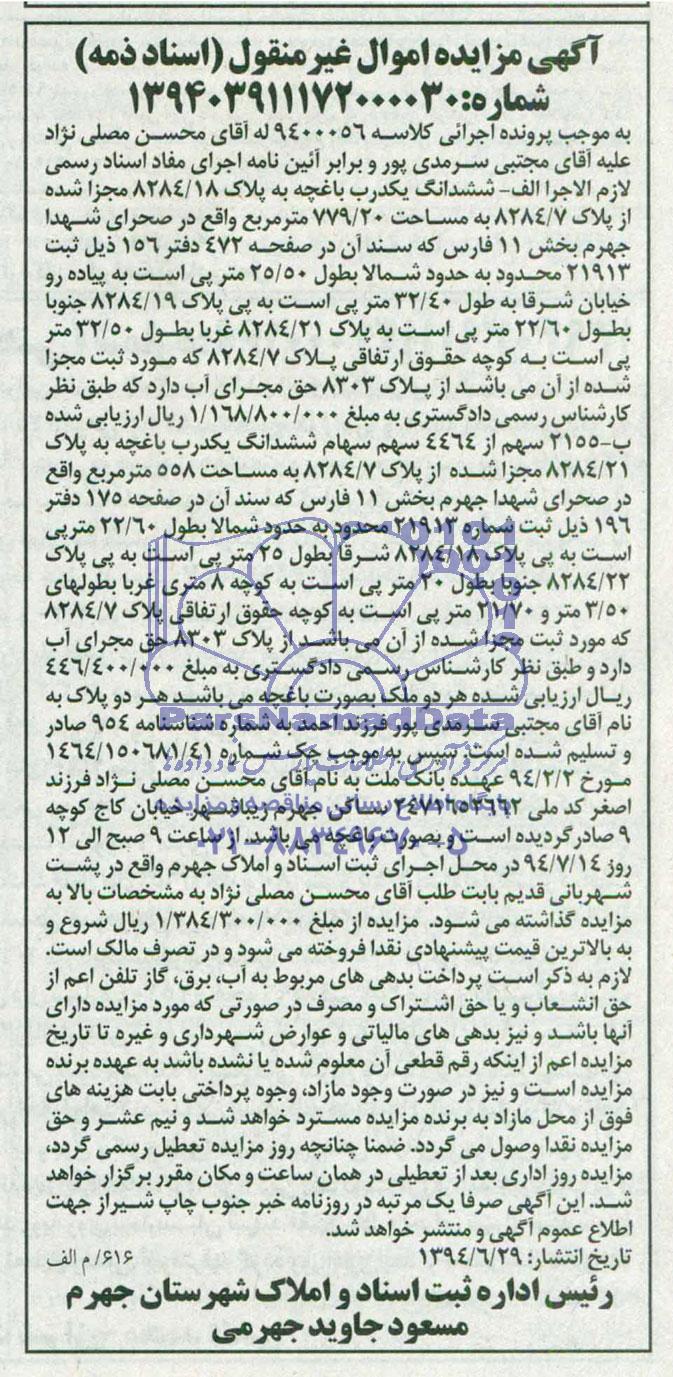 آگهی مزایده اموال غیر منقول (اسناد ذمه)
شماره: ۱۳۹۴۰۳۹۱۱۱۱۷۲۰۰۰۰۳۰
به موجب پرونده اجرائی کلاسه ۹۴۰۰۰۵۶ له آقای محسن مصلی نژاد
علیه آقای مجتبی سرمدی پور و برابر آئین نامه اجرای مفاد اسناد رسمی
لازم الاجرا الف- ششدانگ یکدرب باغچه به پلاک ۸۲۸۴/۱۸ مجزا شده
از پلاک ۸۲۸۴/۷ به مساحت ۷۷۹/۲۰ مترمربع واقع در صحرای شهدا
جهرم بخش ۱۱ فارس که سند آن در صفحه ۴۷۲ دفتر ۱۵۶ ذیل ثبت
۲۱۹۱۳ محدود به حدود شمالا بطول ۲۵/۵۰ متر پی است به پیاده رو
خیابان شرقا به طول ۳۲/۴۰ متر پی است به پی پلاک ۸۲۸۴/۱۹ جنوبا
بطول ۲۲/۶۰ متر پی است به پلاک ۸۲۸۴/۲۱ غربا بطول ۳۲/۵۰ متر
پی است به کوچه حقوق ارتفاقی پلاک ۸۲۸۴/۷ که مورد ثبت مجزا
شده از آن می باشد از پلاک ۸۳۰۳ حق مجرای آب دارد که طبق نظر
کارشناس رسمی دادگستری به مبلغ ۱/۱۶۸/۸۰۰/۰۰۰ ریال ارزیابی شده
ب-۲۱۵۵ سهم از ۴۴۶۴ سهم سهام ششدانگ یکدرب باغچه به پلاک
۸۲۸۴/۲۱ مجزا شده از پلاک ۸۲۸۴/۷ به مساحت ۵۵۸ مترمربع واقع
در صحرای شهدا جهرم بخش ۱۱ فارس که سند آن در صفحه ۱۷۵ دفتر
۱۹۶ ذیل ثبت شماره ۲۱۹۱۳ محدود به حدود شمالا بطول ۲۲/۶۰ مترپی
است به پی پلاک ۸۲۸۴/۱۸ شرقا بطول ۲۵ متر پی است به پی پلاک
۸۲۸۴/۲۲ جنوبا بطول ۲۰ متر پی است به کوچه ۸ متری غربا بطولهای
۳/۵۰ متر و ۲۱/۷۰ متر پی است به کوچه حقوق ارتفاقی پلاک ۸۲۸۴/۷
که مورد ثبت مجزا شده از آن می باشد از پلاک ۸۳۰۳ حق مجرای آب
دارد و طبق نظر کارشناس رسمی دادگستری به مبلغ ۴۴۶/۴۰۰/۰۰۰
ریال ارزیابی شده هر دو ملک بصورت باغچه می باشد هر دو پلاک به
ParsNamadData
نام آقای مجتبی سرمدی پور فرزند احمد به شماره شناسنامه ۹۵۴ صادر
و تسلیم شده است سپس به موجب چک شماره ۱۴۶۴/۱۵۰۶۸۱/۴۱
مورخ ۹۴/۲/۲ عهده بانک ملت به نام آقای محسن مصلی نژاد فرزند
پایگاه اطلاع رسانی مناقصه و مزایده
اصغر کد ملی ساکن جهرم زیباشهر خیابان کاج کوچه
۹ صادر گردیده است و بصورت باغچه می باشد. از ساعت ۹ صبح الی ۱۲
۰۲۱-۸۸۳۴۹۶۷۰-۵
روز ۹۴/۷/۱۴ در محل اجرای ثبت اسناد و املاک جهرم واقع در پشت
شهربانی قدیم بابت طلب آقای محسن مصلی نژاد به مشخصات بالا به
مزایده گذاشته می شود. مزایده از مبلغ ۱/۳۸۴/۳۰۰/۰۰۰ ریال شروع و
به بالاترین قیمت پیشنهادی نقدا فروخته می شود و در تصرف مالک است.
لازم به ذکر است پرداخت بدهی های مربوط به آب، برق، گاز تلفن اعم از
حق انشعاب و یا حق اشتراک و مصرف در صورتی که مورد مزایده دارای
آنها باشد و نیز بدهی های مالیاتی و عوارض شهرداری و غیره تا تاریخ
مزایده اعم از اینکه رقم قطعی آن معلوم شده یا نشده باشد به عهده برنده
مزایده است و نیز در صورت وجود مازاد، وجوه پرداختی بابت هزینه های
فوق از محل مازاد به برنده مزایده مسترد خواهد شد و نیم عشر و حق
مزایده نقدا وصول می گردد. ضمنا چنانچه روز مزایده تعطیل رسمی گردد،
مزایده روز اداری بعد از تعطیلی در همان ساعت و مکان مقرر برگزار خواهد
شد. این آگهی صرفا یک مرتبه در روزنامه خبر جنوب چاپ شیراز جهت
اطلاع عموم آگهی و منتشر خواهد شد.
تاریخ انتشار: ۱۳۹۴/۶/۲۹ ۶۱۶/م الف
رئیس اداره ثبت اسناد و املاک شهرستان جهرم
مسعود جاوید جهرمی